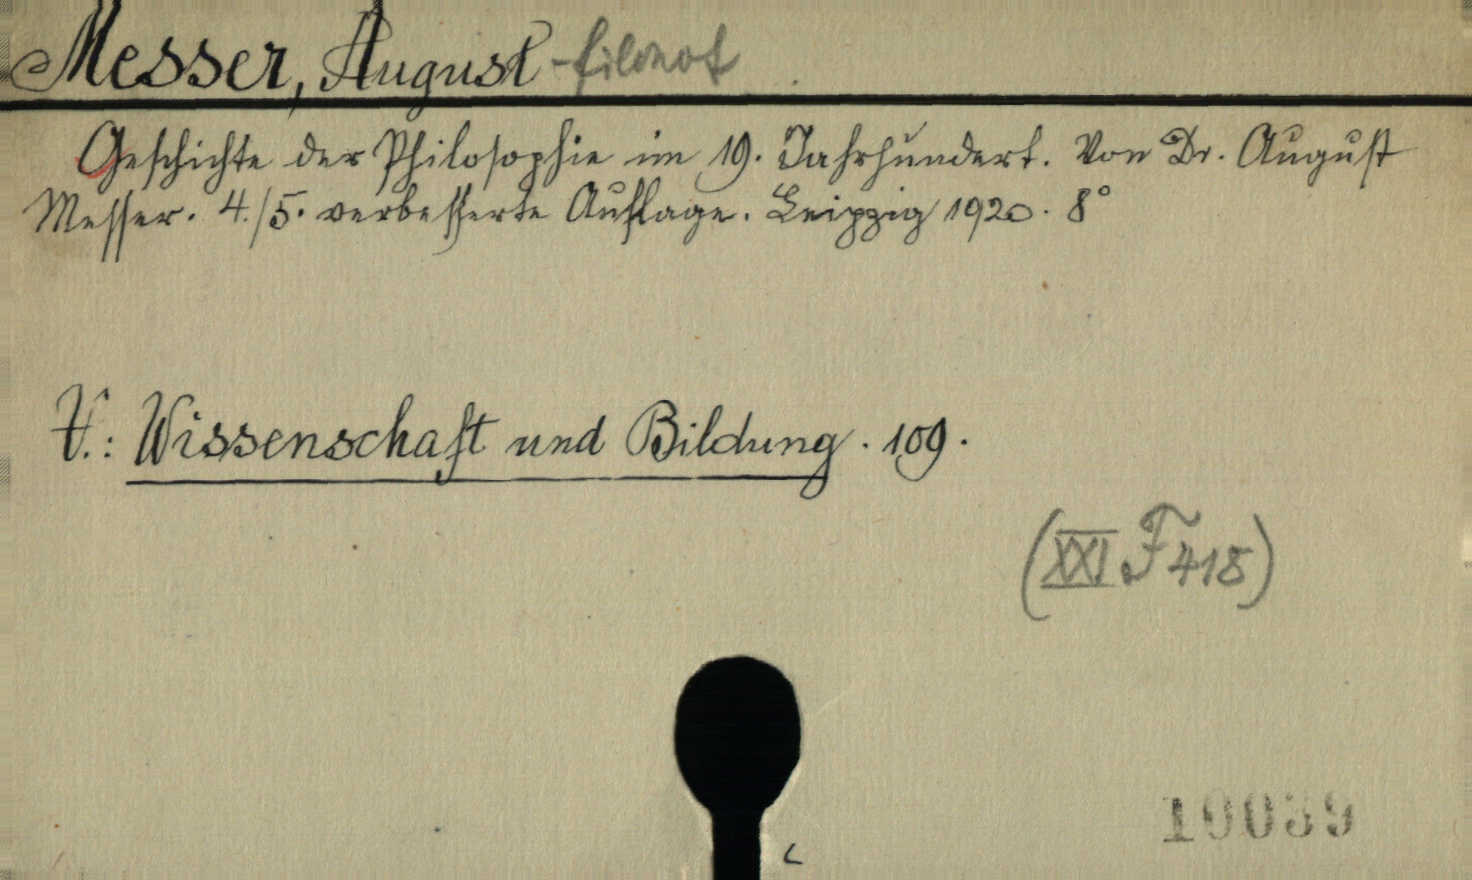 Messer, August - filozof
Geschichte der Philosophie im 19. Jahrhundert. Von Dr. August
Messer. 4./5. verbesserte Auflage. Leipzig 1920. 8°
V.: Wissenschaft und Bildung. 109.
(XXI F 418)
10039